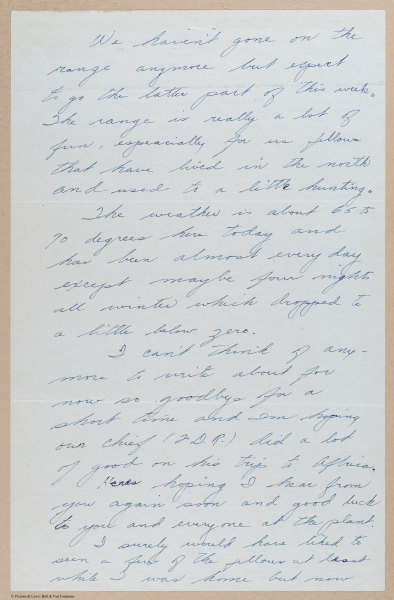 We haven't gone on the
range anymore but expect
to go the latter part of this week.
The range is really a lot of
fun, especially for us fellows
that have lived in the north
and used to a little hunting.
The weather is about 65 to
70 degrees here today and
has been almost every day
except maybe four nights
all winter which dropped to
a little below zero.
I can't think of any-
more to write about for
now so goodbye for a
short time and I'm hoping
our chief (F.D.R.) did a lot
of good on his trip to Africa.
Here's hoping I hear from
you again soon and good luck
to you and everyone at the plant.
I surely would have liked to
seen a few of the fellows at least
while I was home but now